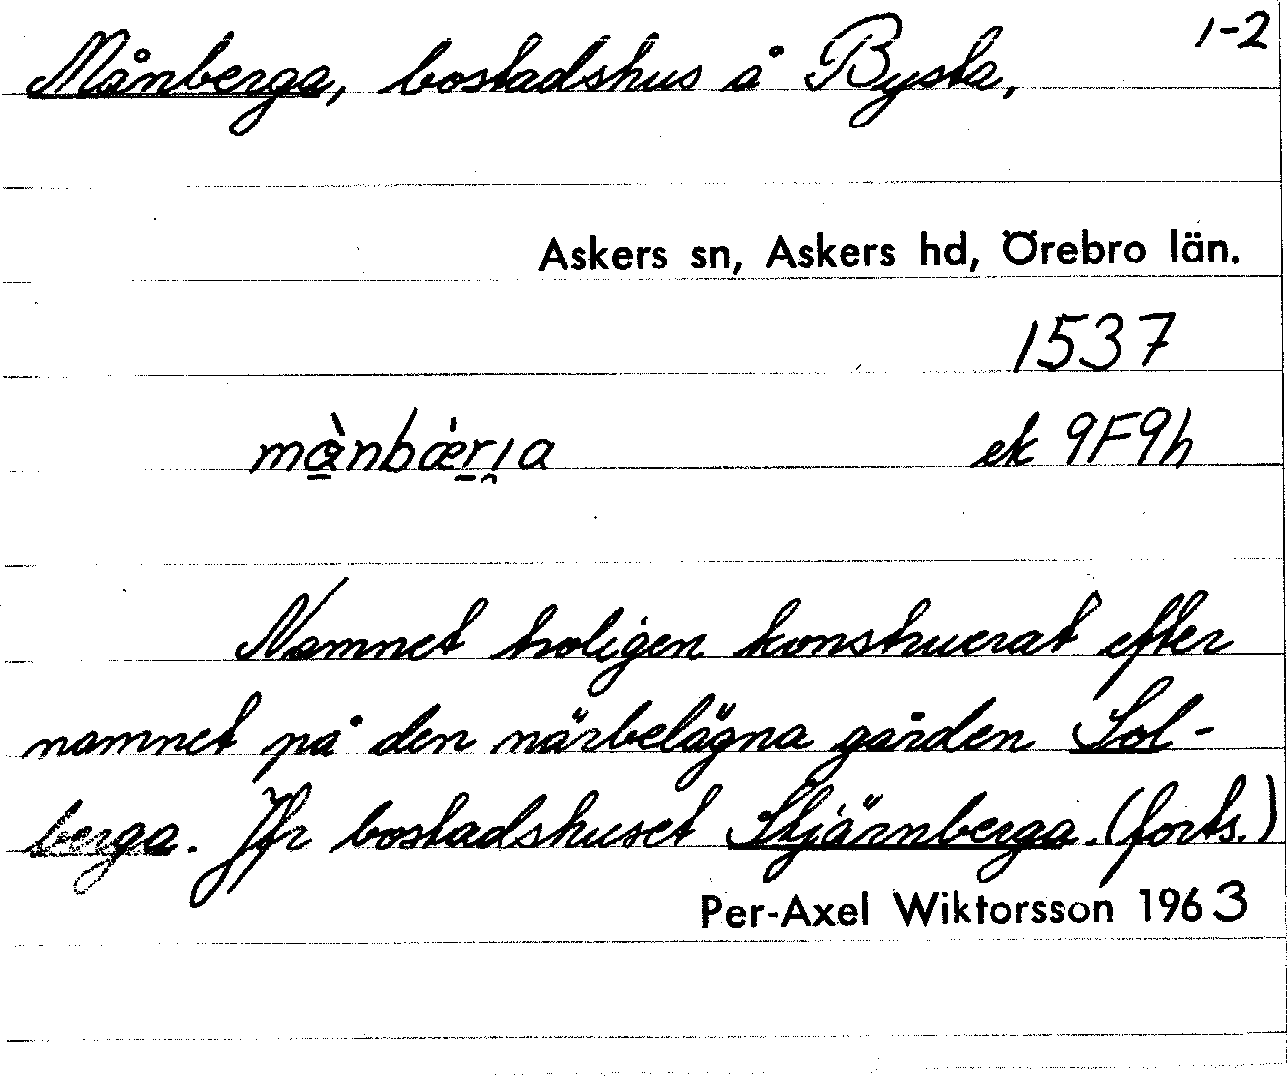 1-2
Månberga, bostadshus å Bysta,
Askers sn, Askers hd, Örebro län.
1537
ek 9F9h
Namnet troligen konstruerat efter
namnet på den närbelägna gården Sol-
berga. Jfr bostadshuset Stjärnberga. (forts.)
Per-Axel Wiktorsson 1963